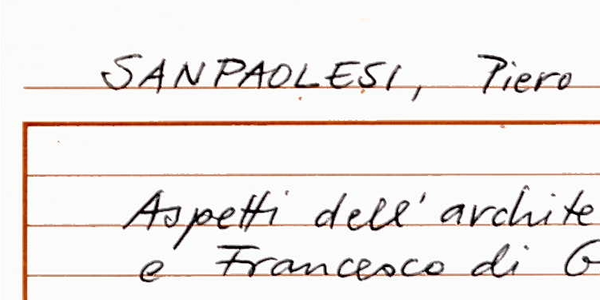 SANPAOLESI, Piero
Aspetti dell'archite
e Francesco di G